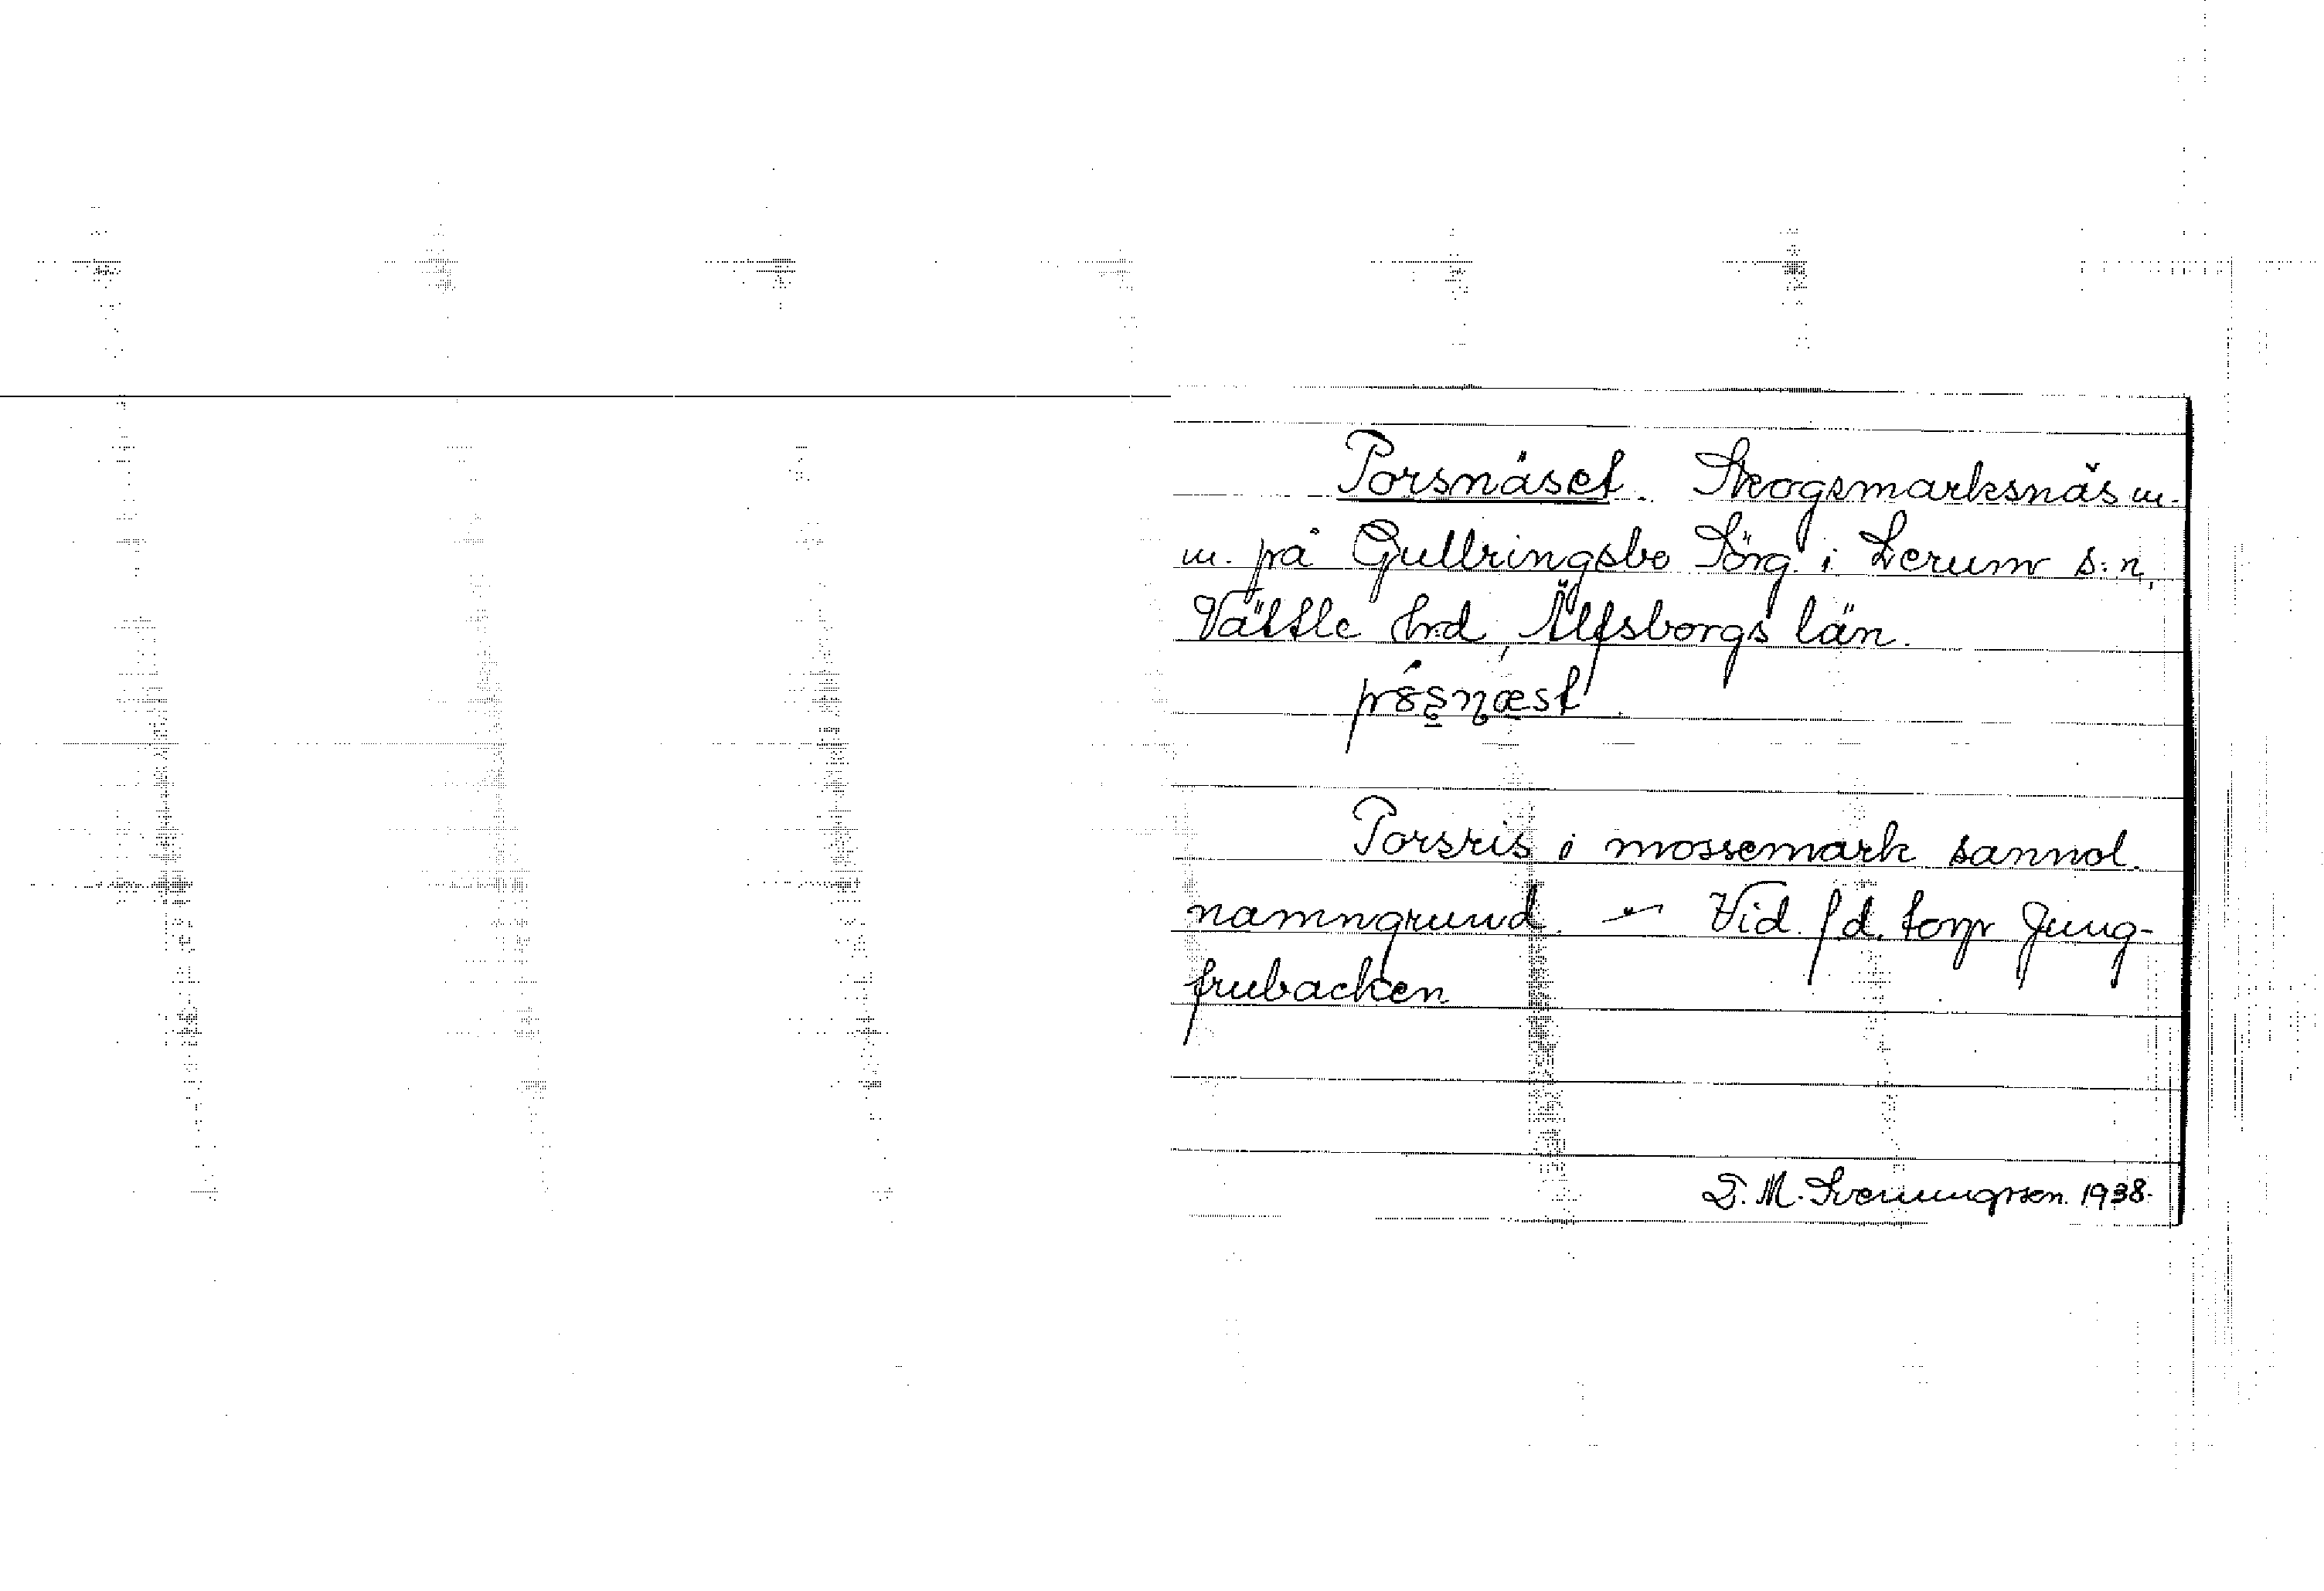 Porsnäset. Skogsmarksnäs m.
m. på Gullringsbo Sörg. i Lerum s:n,
Vättle hrd, Älfsborgs län.
Porsris i mossemark sannol.
namngrund. — Vid f.d. torp Jung-
frubacken
D. M. Svenungsson. 1938.